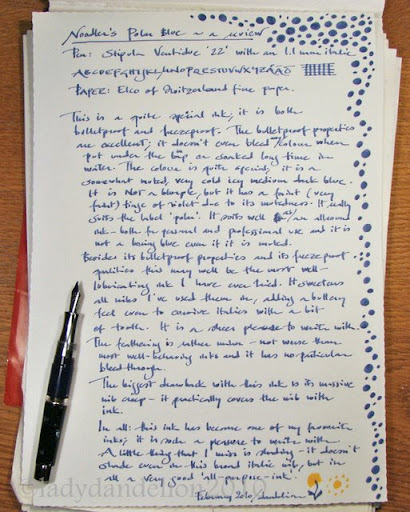 Noodler's Polar Blue ~ a review
Pen: Stipula Ventidue '22' with an 1.1 mm italic
ABCDEFGHIJKLMNOPQRSTUVWXYZÅÄÖ
Paper: Elco of Switzerland fine paper.
This is a quite special ink; it is both
bulletproof and freezeproof. The bulletproof properties
are excellent; it doesn't even bleed colour when
put under the tap or soaked long time in
water. The colour is quite special; it is a
somewhat muted, very cold icy medium dark blue.
It is Not a blurple, but it has a faint (very
faint) tinge of violet due to its mutedness. It really
suits the label 'polar'. It suits well as an allround
ink - both for personal and professional use and it is
not a boring blue even if it is muted.
Besides its bulletproof properties and its freezeproof
qualities this may well be the most well-
lubricating ink I have ever tried. It sweetens
all nibs I've used them on, adding a buttery
feel even to cursive italics with a bit
of tooth. It is a sheer pleasure to write with.
The feathering is rather minor - not worse than
most well-behaving inks and it has no particular
bleedthrough.
The biggest drawback with this ink is its massive
nib creep - it practically covers the nib with
ink.
In all: this ink has become one of my favourite
inks; it is such a pleasure to write with.
A little thing that I miss is shading - it doesn't
shade even in this broad italic nib, but in
all a very good 'all-purpose-ink'.
February 2010/dandelion
©ladydandelion 2010